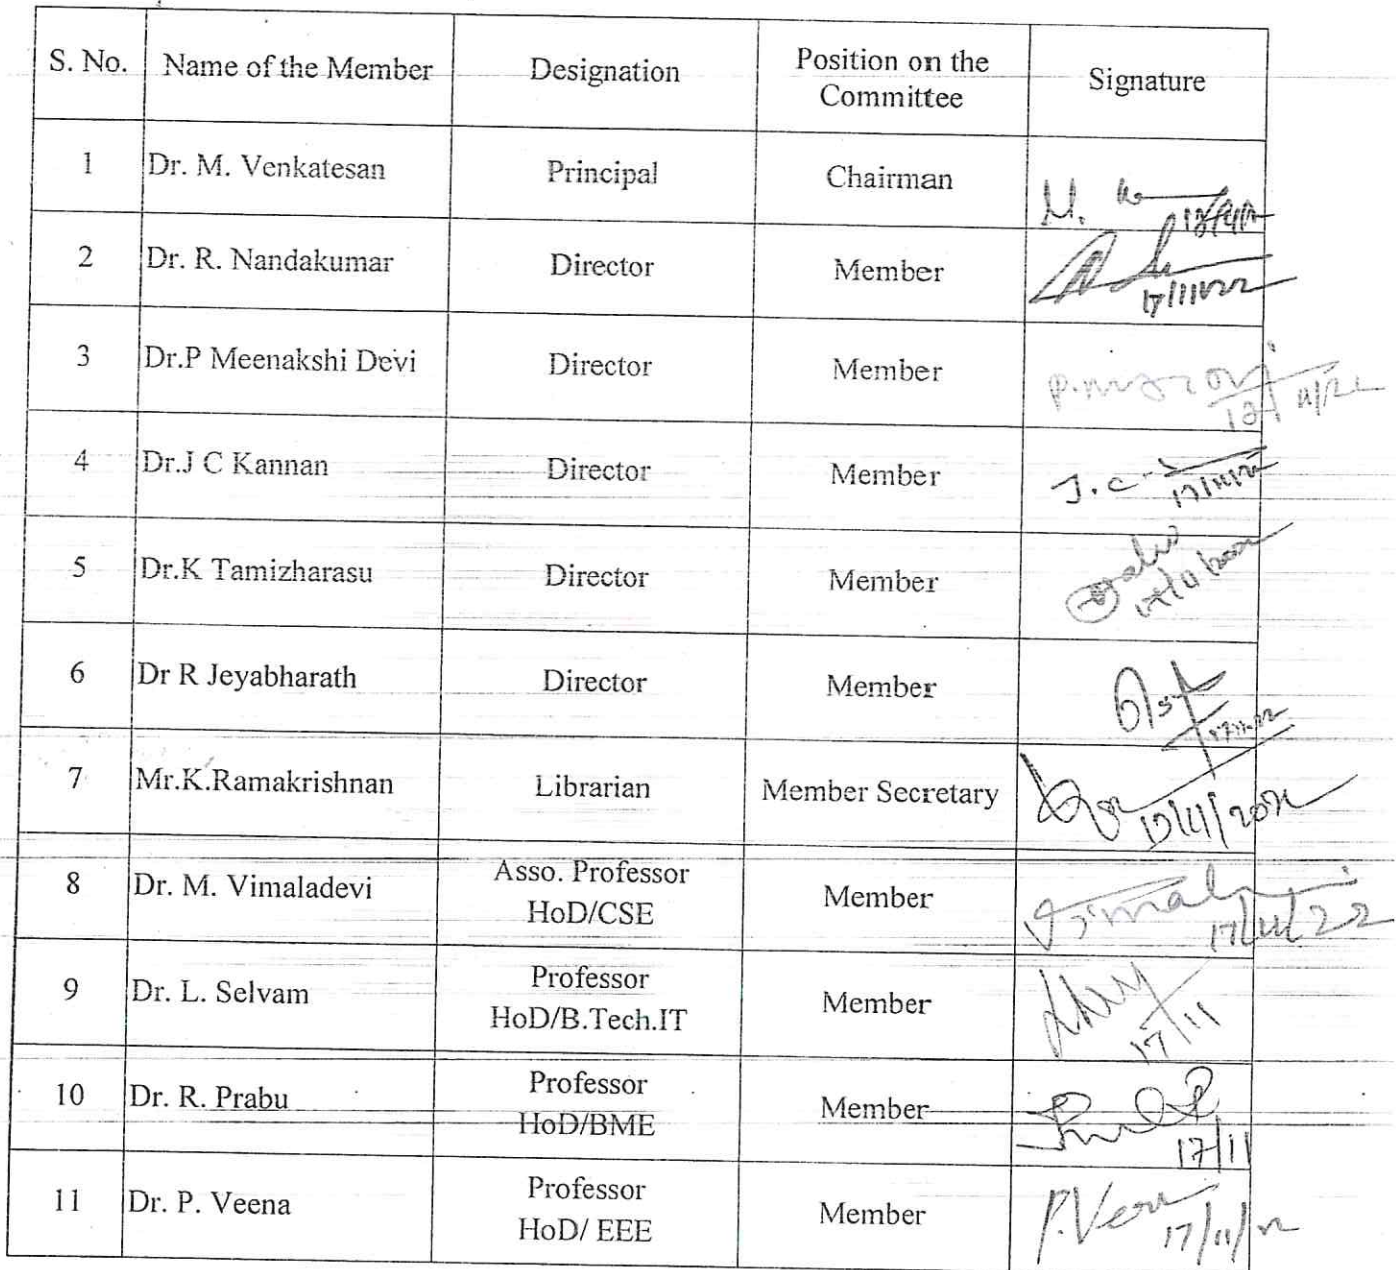 S. No. Name of the Member Designation Position on the Committee Signature
1 Dr. M. Venkatesan Principal Chairman M.
2 Dr. R. Nandakumar Director Member 17/11/22
3 Dr.P Meenakshi Devi Director Member
4 Dr.J C Kannan Director Member J.C 17/11/22
5 Dr.K Tamizharasu Director Member
6 Dr R Jeyabharath Director Member 17.11.22
7 Mr.K.Ramakrishnan Librarian Member Secretary 17/11/2022
8 Dr. M. Vimaladevi Asso. Professor HoD/CSE Member 17/11/22
9 Dr. L. Selvam Professor HoD/B.Tech.IT Member 17/11
10 Dr. R. Prabu Professor HoD/BME Member 17/11
11 Dr. P. Veena Professor HoD/ EEE Member P.Veena 17/11/22